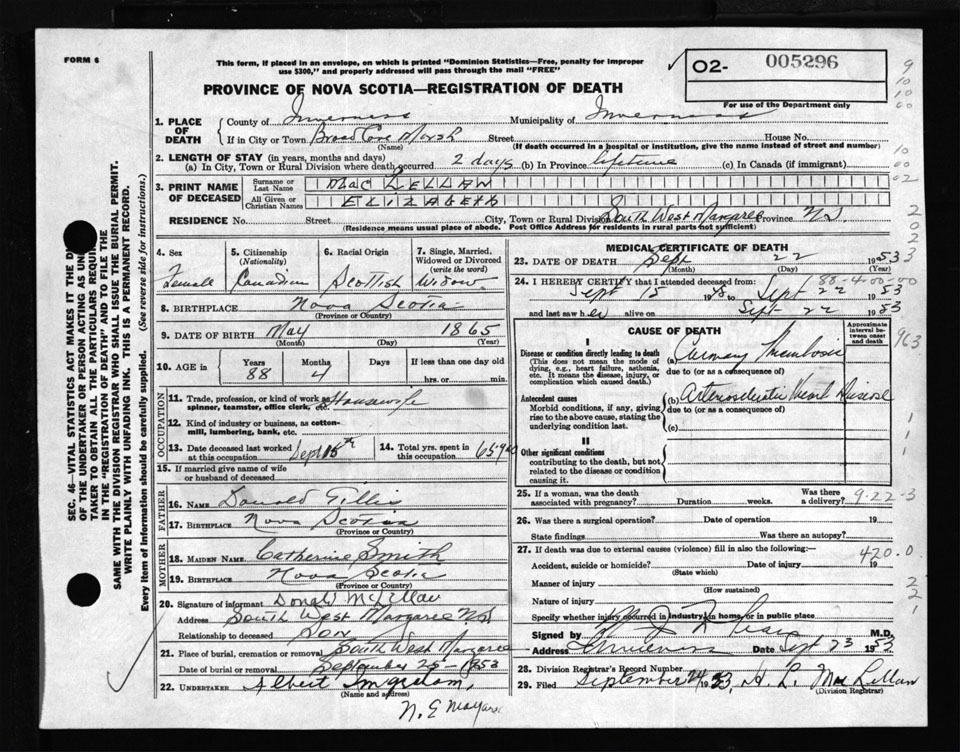 FORM 6
This form, if placed in an envelope, on which is printed "Dominion Statistics—Free, penalty for improper
use $300," and properly addressed will pass through the mail "FREE"
O2- 005296
For use of the Department only
PROVINCE OF NOVA SCOTIA—REGISTRATION OF DEATH
SEC. 46—VITAL STATISTICS ACT MAKES IT THE
OF THE UNDERTAKER OR PERSON ACTING AS
TAKER TO OBTAIN ALL THE PARTICULARS
IN THE "REGISTRATION OF DEATH" AND TO FILE THE
SAME WITH THE DIVISION REGISTRAR WHO SHALL ISSUE THE BURIAL PERMIT.
WRITE PLAINLY WITH UNFADING INK. THIS IS A PERMANENT RECORD.
Every item of information should be carefully supplied. (See reverse side for instructions.)
1. PLACE OF DEATH
County of Inverness Municipality of Inverness
If in City or Town Broad Cove Marsh Street House No.
(Name) (If death occurred in a hospital or institution, give the name instead of street and number)
2. LENGTH OF STAY (in years, months and days)
(a) In City, Town or Rural Division where death occurred 2 days (b) In Province lifetime (c) In Canada (if immigrant)
3. PRINT NAME OF DECEASED
Surname or Last Name MacLELLAN
All Given or Christian Names ELIZABETH
RESIDENCE No. Street City, Town or Rural Division South West Margaree Province N.S.
(Residence means usual place of abode. Post Office Address for residents in rural parts not sufficient)
4. Sex Female
5. Citizenship (Nationality) Canadian
6. Racial Origin Scottish
7. Single, Married, Widowed or Divorced (write the word) Widow
8. BIRTHPLACE Nova Scotia
(Province or Country)
9. DATE OF BIRTH May 1865
(Month) (Day) (Year)
10. AGE in Years 88 Months 4 Days If less than one day old hrs. or min.
OCCUPATION
11. Trade, profession, or kind of work as spinner, teamster, office clerk, etc. Housewife
12. Kind of industry or business, as cotton-mill, lumbering, bank, etc.
13. Date deceased last worked at this occupation Sept 15th
14. Total yrs. spent in this occupation 65 yrs
15. If married give name of wife or husband of deceased
FATHER
16. NAME Donald Gillis
17. BIRTHPLACE Nova Scotia
(Province or Country)
MOTHER
18. MAIDEN NAME Catherine Smith
19. BIRTHPLACE Nova Scotia
(Province or Country)
20. Signature of informant Donald McLellan
Address South West Margaree N.S
Relationship to deceased Son
21. Place of burial, cremation or removal South West Margaree
Date of burial or removal September 25-1953
22. UNDERTAKER Albert
(Name and address)
N. E Margaree
MEDICAL CERTIFICATE OF DEATH
23. DATE OF DEATH Sept 22 1953
(Month) (Day) (Year)
24. I HEREBY CERTIFY that I attended deceased from: 88-4-00-00
Sept 15 19 to Sept 22 1953
and last saw her alive on Sept 22 1953
CAUSE OF DEATH
Approximate interval between onset and death
I
Disease or condition directly leading to death
(This does not mean the mode of dying, e.g., heart failure, asthenia, etc. It means the disease, injury, or complication which caused death.)
(a) Coronary Thrombosis
due to (or as a consequence of)
Antecedent causes
Morbid conditions, if any, giving rise to the above cause, stating the underlying condition last.
(b) Arteriosclerotic Heart Disease
due to (or as a consequence of)
(c)
II
Other significant conditions
contributing to the death, but not related to the disease or condition causing it.
25. If a woman, was the death associated with pregnancy? Duration weeks. Was there a delivery? 9-22-3
26. Was there a surgical operation? Date of operation 19
State findings Was there an autopsy?
27. If death was due to external causes (violence) fill in also the following:— 420.0
Accident, suicide or homicide? Date of injury 19
(State which)
Manner of injury
(How sustained)
Nature of injury
Specify whether injury occurred in industry, in home, or in public place
Signed by M.D.
Address Inverness Date Sept 23 1953
28. Division Registrar's Record Number
29. Filed September 24 1953, H. L. MacLellan
(Division Registrar)
963